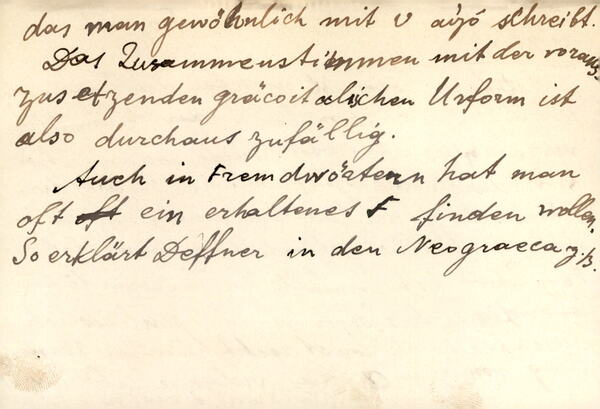 das man gewöhnlich mit υ αὐγό schreibt.
Das Zusammenstimmen mit der voraus-
zusetzenden gräcoitalischen Urform ist
also durchaus zufällig.
Auch in Fremdwörtern hat man
oft ein erhaltenes F finden wollen.
So erklärt Deffner in den Neograeca z.B.